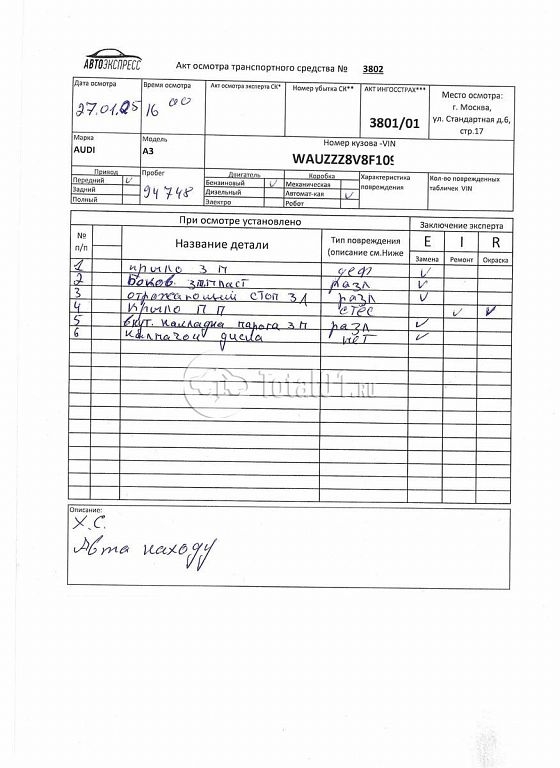 АВТОЭКСПРЕСС
Акт осмотра транспортного средства № 3802
Дата осмотра
27.01.25
Время осмотра
16 00
Акт осмотра эксперта СК*
Номер убытка СК**
АКТ ИНГОССТРАХ***
3801/01
Место осмотра:
г. Москва,
ул. Стандартная д.6,
стр.17
Марка
AUDI
Модель
A3
Номер кузова -VIN
WAUZZZ8V8F109
Привод
Передний ✓
Задний
Полный
Пробег
94748
Двигатель
Бензиновый ✓
Дизельный
Электро
Коробка
Механическая
Автомат-кая ✓
Робот
Характеристика
повреждения
Кол-во поврежденных
табличек VIN
При осмотре установлено
Заключение эксперта
№
п/п
Название детали
Тип повреждения
(описание см.Ниже
E I R
Замена Ремонт Окраска
1 крыло З П деф ✓
2 Боков. пласт разл ✓
3 отражающий стоп З Л разл ✓
4 Крыло П П ✓ ✓
5 накладка порога З П разл ✓
6 диска нет ✓
Total01.ru
Описание:
Х.С.
Авто находу